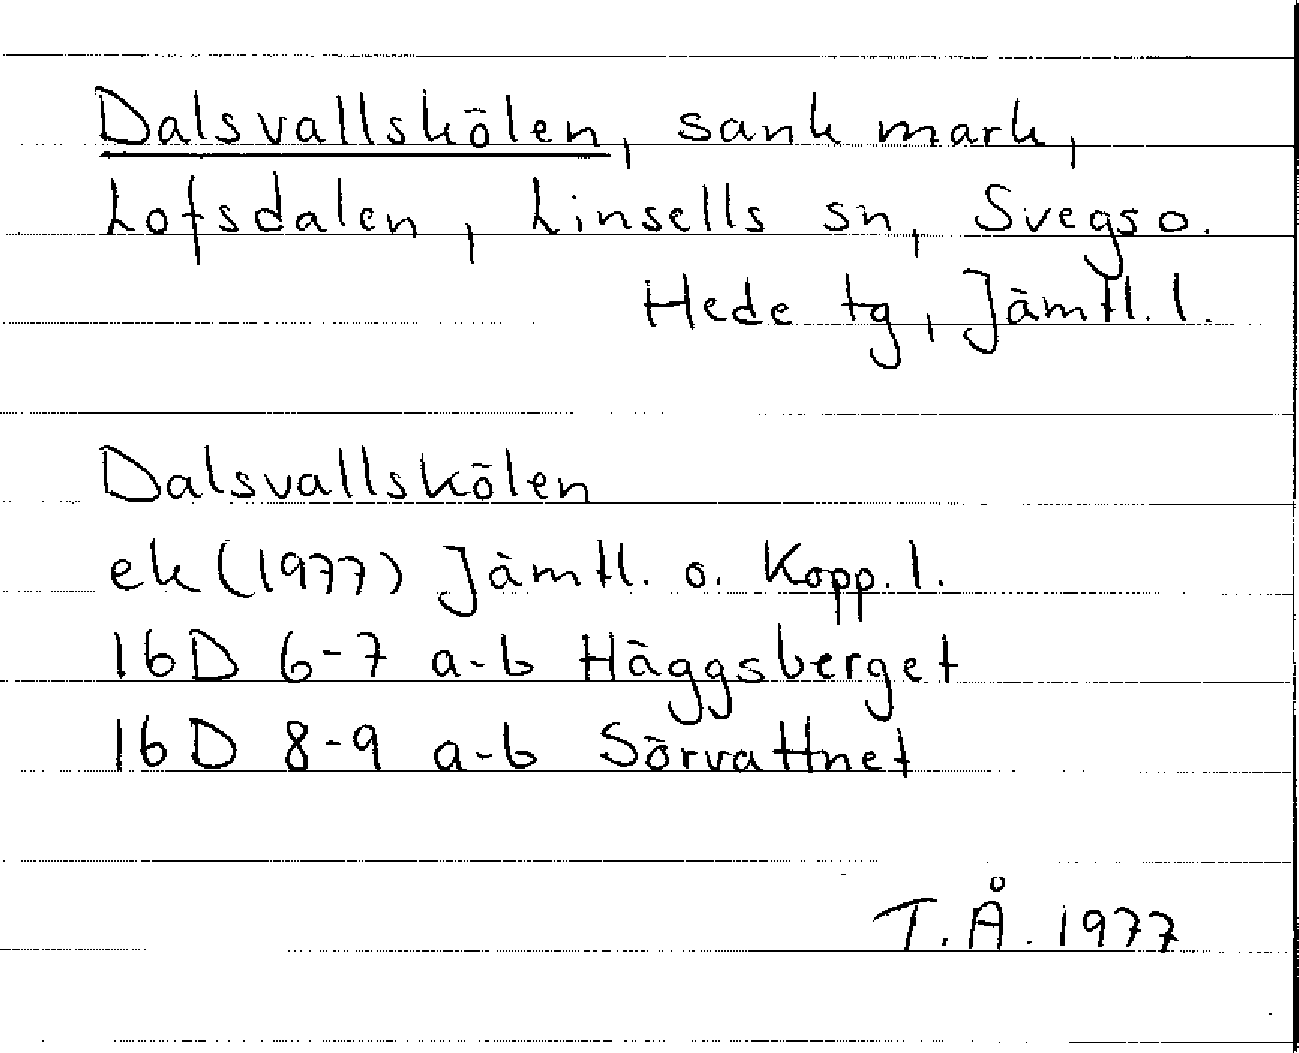 Dalsvallskölen, sank mark,
Lofsdalen, Linsells sn, Svegs o.
Hede tg, Jämtl. l.
Dalsvallskölen
ek (1977) Jämtl. o. Kopp. l.
16D 6-7 a-b Häggsberget
16D 8-9 a-b Sörvattnet
T.Å. 1977